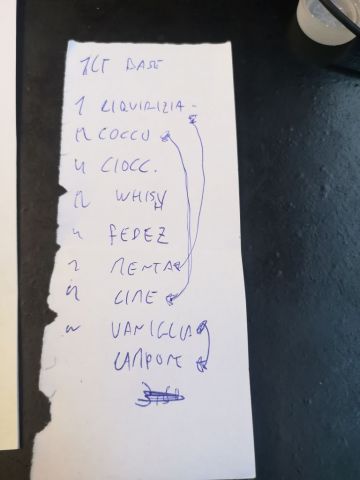 1LT BASE
1 LIQUIRIZIA
COCCO
CIOCC.
WHISY
FEDEZ
MENTA
LIME
VANIGLIA
LAMPONE